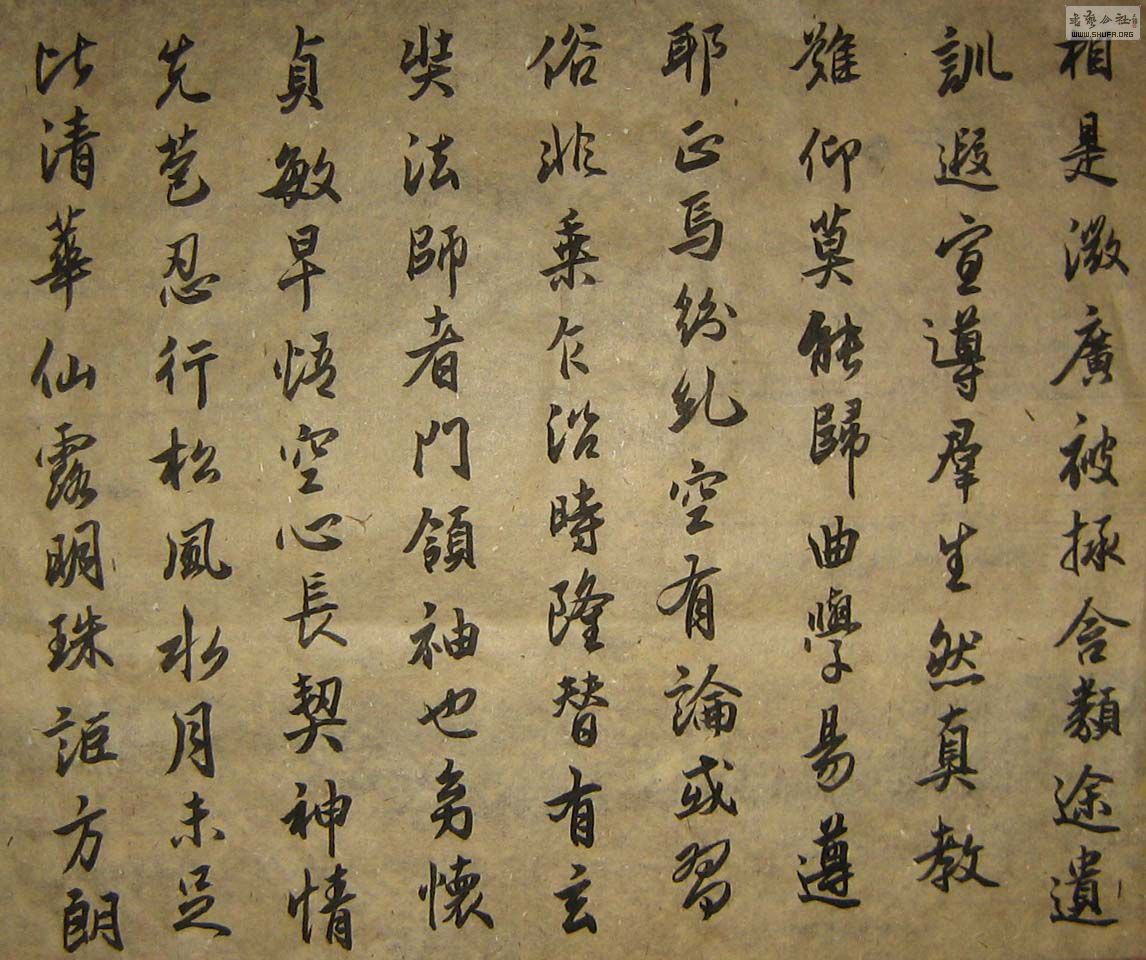 相是微廣被拯含類途遺
訓遐宣導羣生然真教
難仰莫能歸曲學易遵
耶正焉紛糺空有論或習
俗非乗乍沿時隆替有玄
奘法師者門領袖也幼懷
貞敏早悟空心長契神情
先苞忍行松風水月未足
比清華仙露明珠詎方朗
WWW.SHUFA.ORG